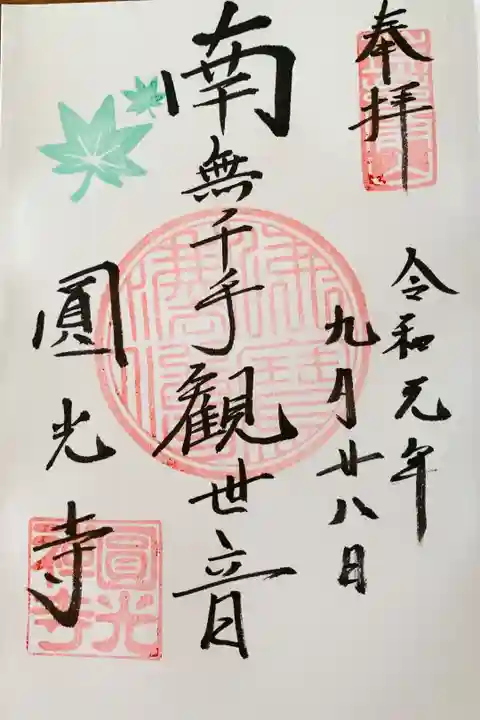 奉拝
令和元年
九月廿八日
南無千手観世音
圓光寺
佛法僧寶
圓光禅寺